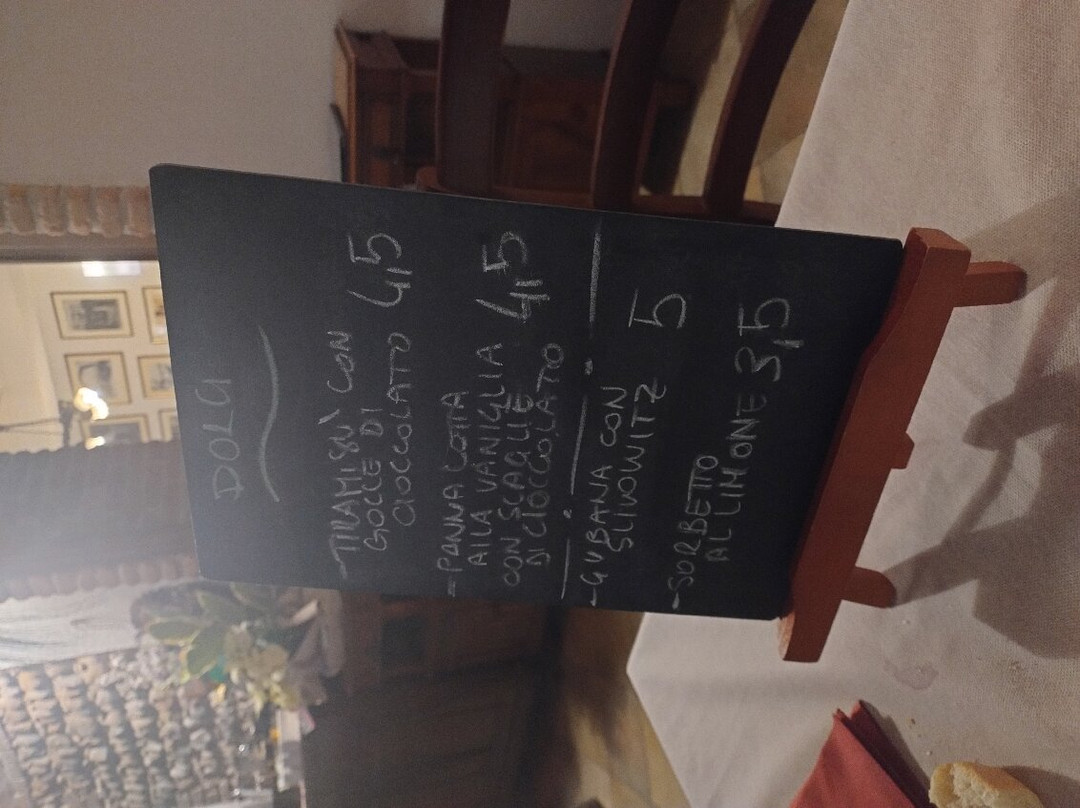 DOLCI
-TIRAMISÙ CON
GOCCE DI
CIOCCOLATO 4,5
-PANNA COTTA
ALLA VANIGLIA 4,5
CON SCAGLIE
DI CIOCCOLATO
-GUBANA CON
SLIVOWITZ 5
-SORBETTO
AL LIMONE 3,5